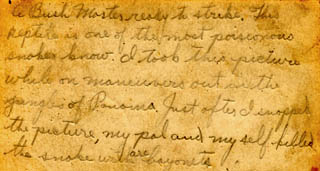 a Bush Master ready to strike. This
reptile is one of the most poisonous
snakes know. I took this picture
while on maneuvers out in the
jungles of Panama. Just after I snapped
the picture, my pal and my self killed
the snake with bayonets.
are